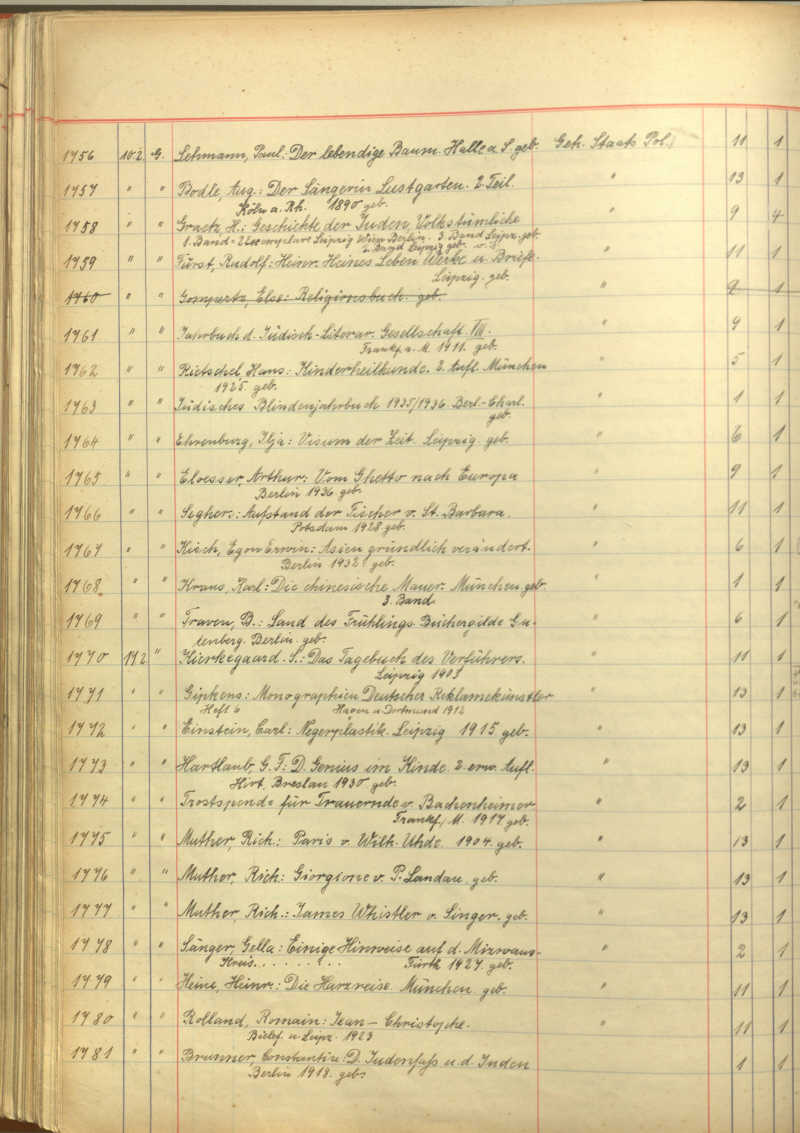 1756 10.2. G. Lehmann, Paul: Der lebendige Baum. Halle a S. geb. Geh. Staats Pol. 11 1
1757 " " Bodle, Aug.: Der Sängerin Lustgarten. 2. Teil. " 13 1
Köln a. Rh. 1890 geb.
1758 " " Graetz, H.: Geschichte der Juden, Volkstümliche " 9 4
1. Band - 2 Leipzig Wien Berlin. 3. Band Leipz. geb.
2. Band Leipzig geb.
1759 " " Fürst, Rudolf: Heinr. Heines Leben Werke u Briefe. " 11 1
Leipzig. geb.
1760 " " Gompertz, Else: Religionsbuch. geb. " 9 1
1761 " " Jahrbuch d. Jüdisch-Literar. Gesellschaft. VIII. " 9 1
Frankf. a. M. 1911. geb.
1762 " " Rietschel, Hans: Kinderheilkunde. 2. Aufl. München " 5 1
1925. geb.
1763 " " Jüdisches Blindenjahrbuch 1935/1936 Berl.-Charl. " 1 1
geb.
1764 " " Ehrenburg, Ilja: Visum der Zeit. Leipzig. geb. " 6 1
1765 " " Eloesser, Arthur: Vom Ghetto nach Europa " 9 1
Berlin 1936 geb.
1766 " " Seghers: Aufstand der Fischer v. St. Barbara. " 11 1
Potsdam 1928 geb.
1767 " " Kisch, Egon Erwin: Asien gründlich verändert. " 6 1
Berlin 1932 geb.
1768 " " Kraus, Karl: Die chinesische Mauer. München. geb. " 1 1
3. Band
1769 " " Traven, B.: Land des Frühlings. Büchergilde Gu- " 6 1
tenberg. Berlin. geb.
1770 11.2 " Kierkegaard. S.: Das Tagebuch des Verführers. " 11 1
Leipzig 1903
1771 " " Gipkens: Monographien Deutscher Reklamekünstler " 13 1
Heft 6 Hagen u Dortmund 1912
1772 " " Einstein, Carl: Negerplastik. Leipzig 1915 geb. " 13 1
1773 " " Hartlaub, G. F.: D. Genius im Kinde. 2. erw. Aufl. " 13 1
Hirt, Breslau 1930. geb.
1774 " " Trostspende für Trauernde v. Bachenheimer " 2 1
Frankf. M. 1917 geb.
1775 " " Muther, Rich.: Paris v. Wilh. Uhde. 1904. geb. " 13 1
1776 " " Muther, Rich: Giorgione v. P. Landau. geb. " 13 1
1777 " " Muther, Rich.: James Whistler v. Singer. geb. " 13 1
1778 " " Sänger, Gella: Einige Hinweise auf d. Mizwaus- " 2 1
Kreis. . . . . . . . Fürth 1927. geb.
1779 " " Heine, Heinr.: Die Harzreise. München geb. " 11 1
1780 " " Rolland, Romain: Jean-Christophe. " 11 1
Bielef. u Leipz. 1923
1781 " " Brunner, Constantin: D. Judenhaß u. d. Juden 1 1
Berlin 1918. geb.